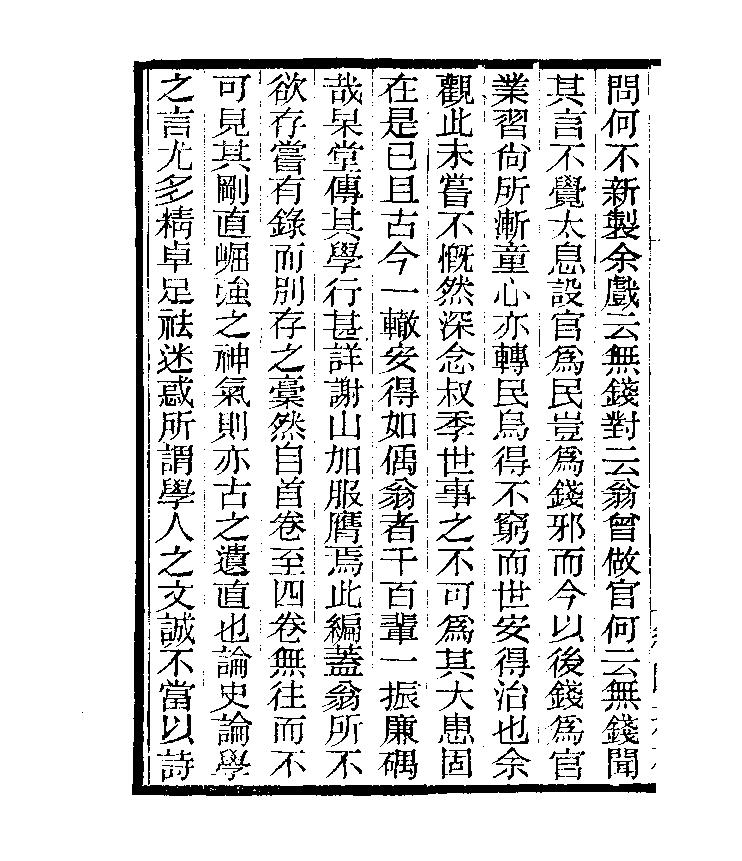 問何不新製余戲云無錢對云翁曾做官何云無錢聞
其言不覺太息設官爲民豈爲錢邪而今以後錢爲官
業習尙所漸童心亦轉民烏得不窮而世安得治也余
觀此未嘗不慨然深念叔季世事之不可爲其大患固
在是已且古今一轍安得如偊翁者千百輩一振廉礪
哉杲堂傳其學行甚詳謝山加服膺焉此編蓋翁所不
欲存嘗有錄而別存之稾然自首卷至四卷無往而不
可見其剛直崛強之神氣則亦古之遺直也論史論學
之言尤多精卓足祛迷惑所謂學人之文誠不當以詩